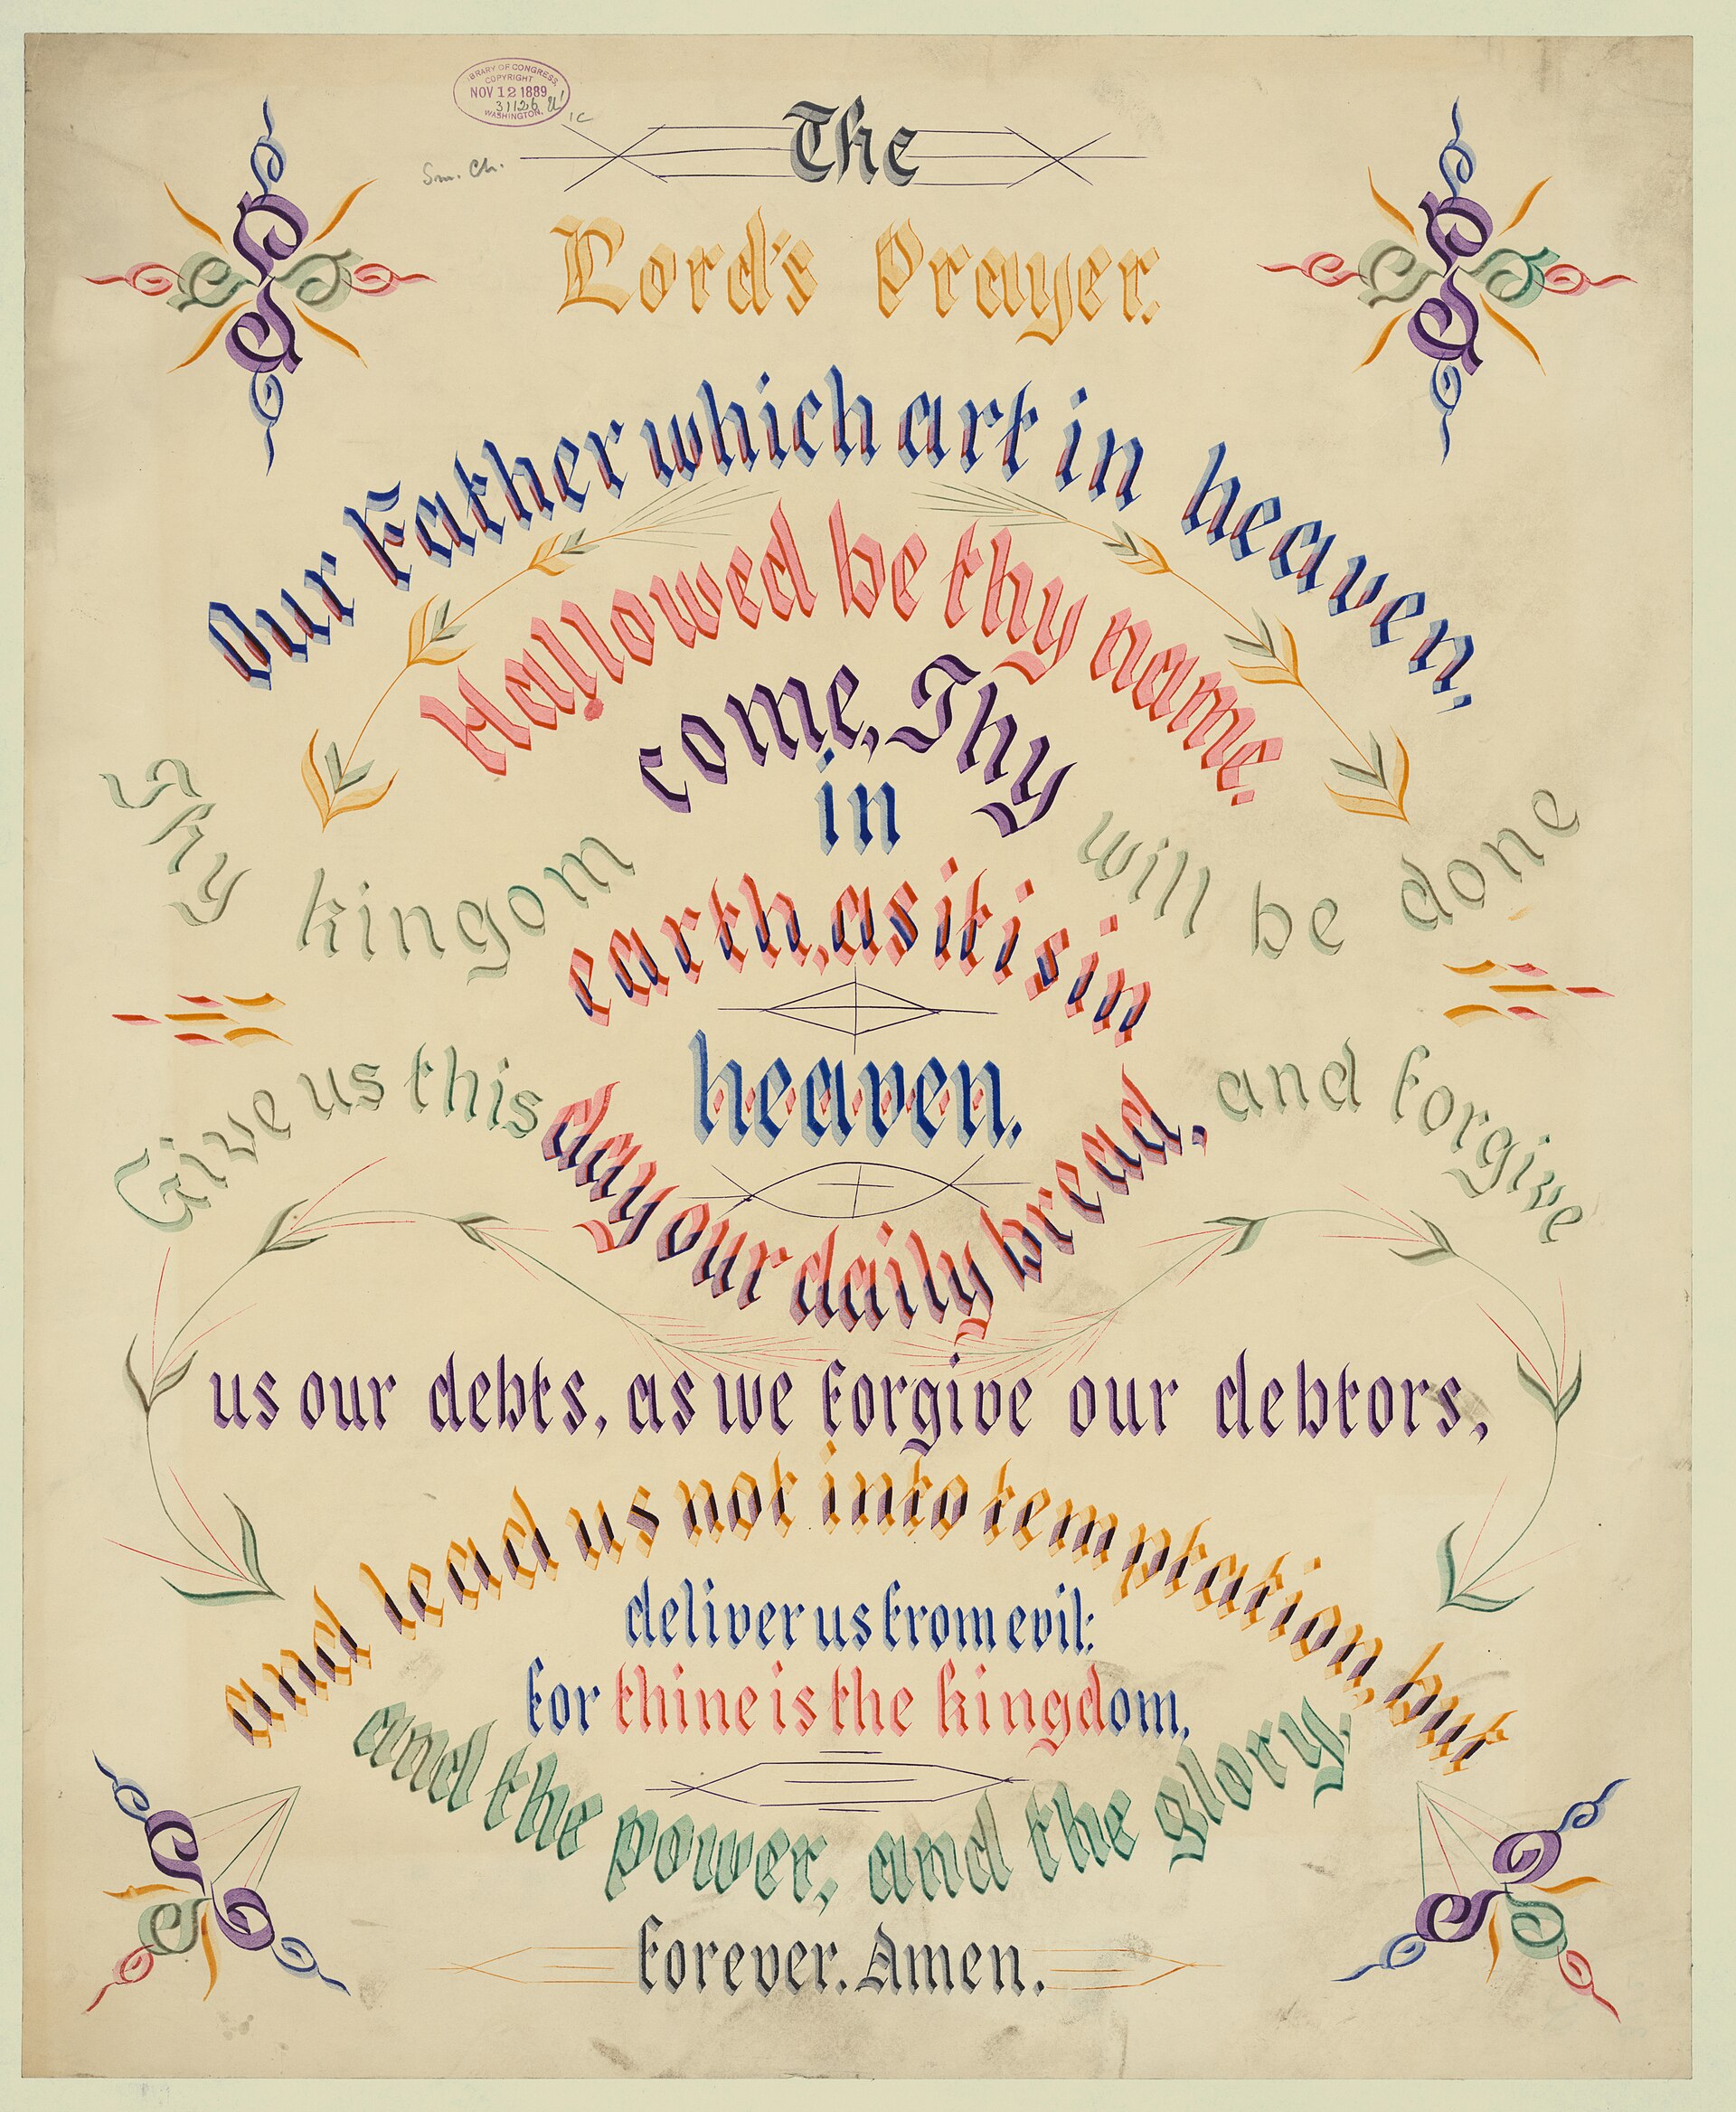 LIBRARY OF CONGRESS,
COPYRIGHT
NOV 12 1889
31126
WASHINGTON.
Sm. Ch.
The
Lord's Prayer.
Our Father which art in heaven,
Hallowed be thy name.
Thy kingom come, Thy will be done
in
earth, as it is in
heaven.
Give us this day our daily bread, and forgive
us our debts, as we forgive our debtors,
and lead us not into temptation, but
deliver us from evil:
for thine is the kingdom,
and the power, and the glory,
forever. Amen.